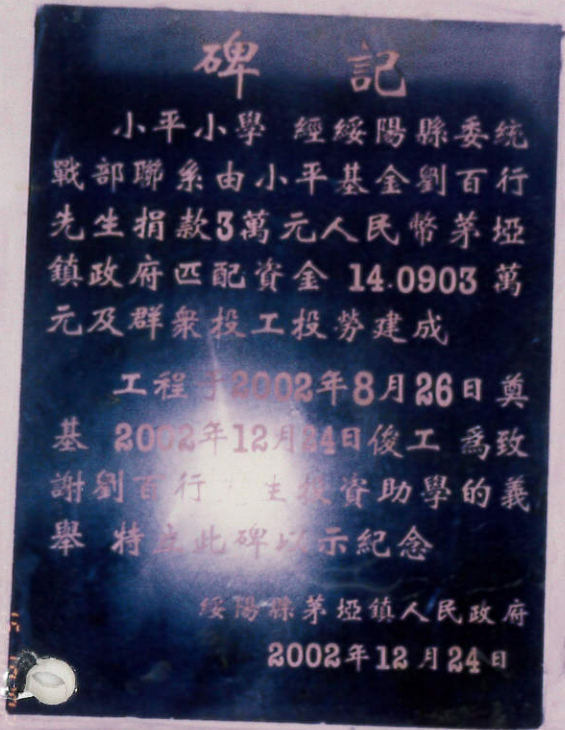 碑 記
小平小學 經綏陽縣委統
戰部聯系由小平基金劉百行
先生捐款3萬元人民幣茅埡
鎮政府匹配資金 14.0903 萬
元及群衆投工投勞建成
工程于2002年8月26日 奠
基 2002年12月24日俊工 爲致
謝劉百行 生投資助學的義
舉 特立此碑以示紀念
綏陽縣茅埡鎮人民政府
2002年12月24日